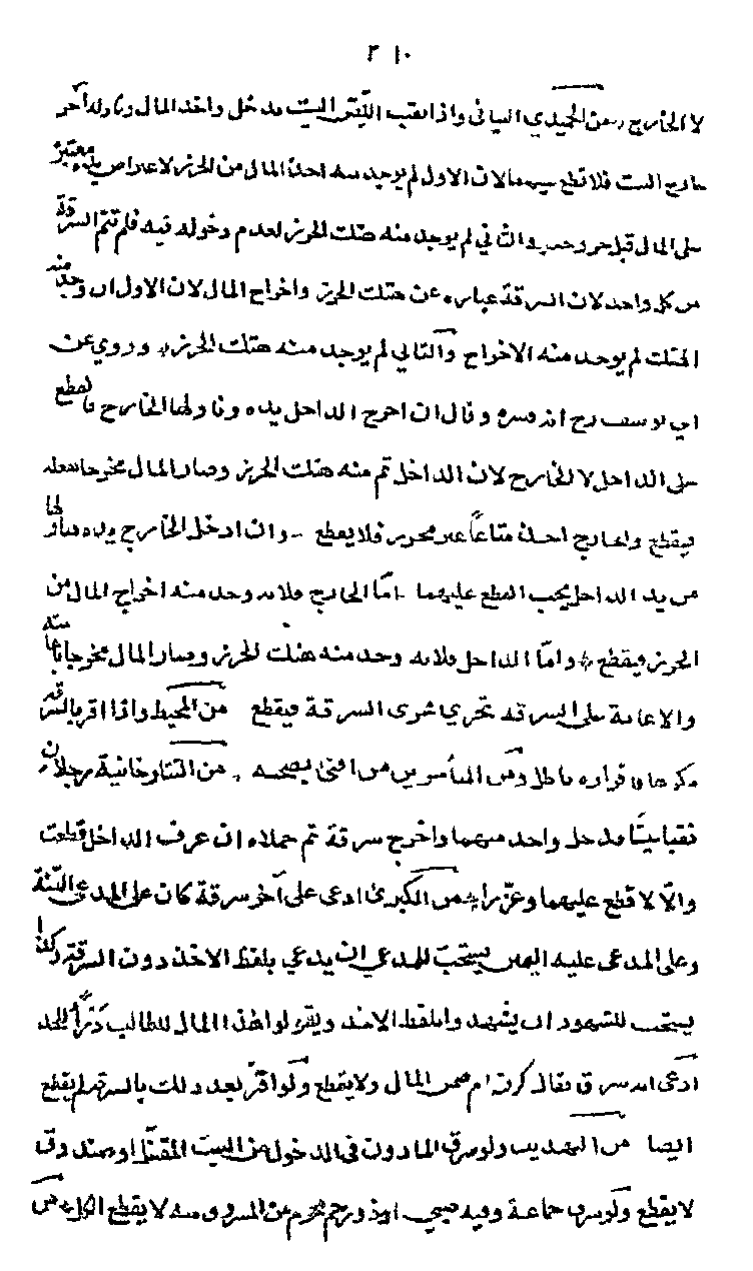 ٣١٠
لا الخارج من الحميدي الساني واذا نقب اللص البيت فدخل واخذ المال وناوله آخر
خارج البيت فلا قطع عليهما لان الاول لم يوجد منه اخذ المال من الحرز لاعتراض يد معتبرة
على المال قبل خروجه والثاني لم يوجد منه هتك الحرز لعدم دخوله فيه فلم تتم السرقة
من كل واحد لان السرقة عبارة عن هتك الحرز واخراج المال لان الاول ان وجد منه
الهتك لم يوجد منه الاخراج والثاني لم يوجد منه هتك الحرز وروي عن
ابي يوسف رح انه فسره وقال ان اخرج الداخل يده وناولها الخارج فالقطع
على الداخل لا الخارج لان الداخل تم منه هتك الحرز وصار المال مخرجا بفعله
فيقطع والخارج اخذ متاعاً غير محرز فلا يقطع وان ادخل الخارج يده فتناولها
من يد الداخل يجب القطع عليهما اما الخارج فلانه وجد منه اخراج المال من
الحرز فيقطع واما الداخل فلانه وجد منه هتك الحرز وصار المال مخرجا باعانته
والاعانة على السرقة تجري مجرى السرقة فيقطع من المحيط واذا اقر بالسرقة
مكرها فاقراره باطل ومن المتأخرين من افتى بصحته من التتارخانية رجلان
نقبا بيتا فدخل واحد منهما واخرج سرقة ثم حملاه ان عرف الداخل قطعت
والا لا قطع عليهما وعزرا من الكبرى ادعى على آخر سرقة كان على المدعي البينة
وعلى المدعى عليه اليمين يستحب للمدعي ان يدعي بلفظ الاخذ دون السرقة وكذا
يستحب للشهود ان يشهدوا بلفظ الاخذ ويقولوا هذا المال للطالب درأ للحد
ادعى انه سرق فقال ضمن المال ولا يقطع ولو اقر بعد ذلك بالسرقة لم يقطع
ايضا من التهذيب ولو سرق المأذون في الدخول من البيت المقفل او صندوق
لا يقطع ولو سرق جماعة وفيه صبي او ذو رحم محرم من المسروق منه لا يقطع الكل من